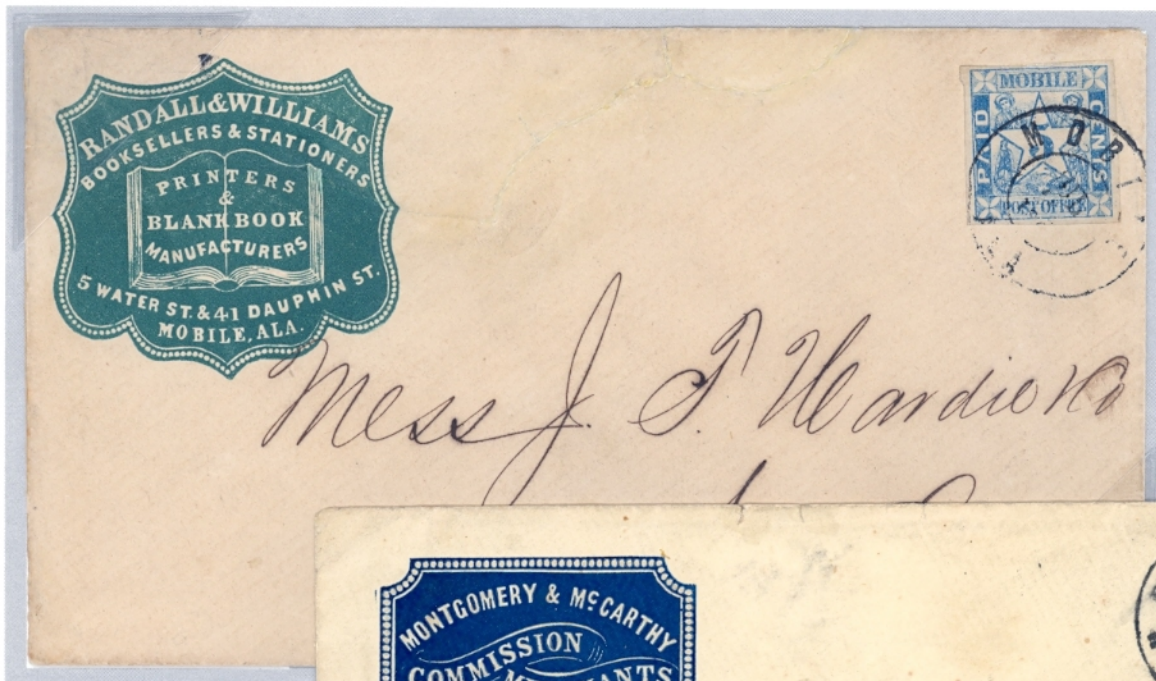 RANDALL & WILLIAMS
BOOKSELLERS & STATIONERS
PRINTERS
&
BLANK BOOK
MANUFACTURERS
5 WATER ST. & 41 DAUPHIN ST.
MOBILE, ALA.
MOBILE
PAID
5
CENTS
POST OFFICE
MOBI
Mess J. T. Hardie & Co
MONTGOMERY & McCARTHY
COMMISSION